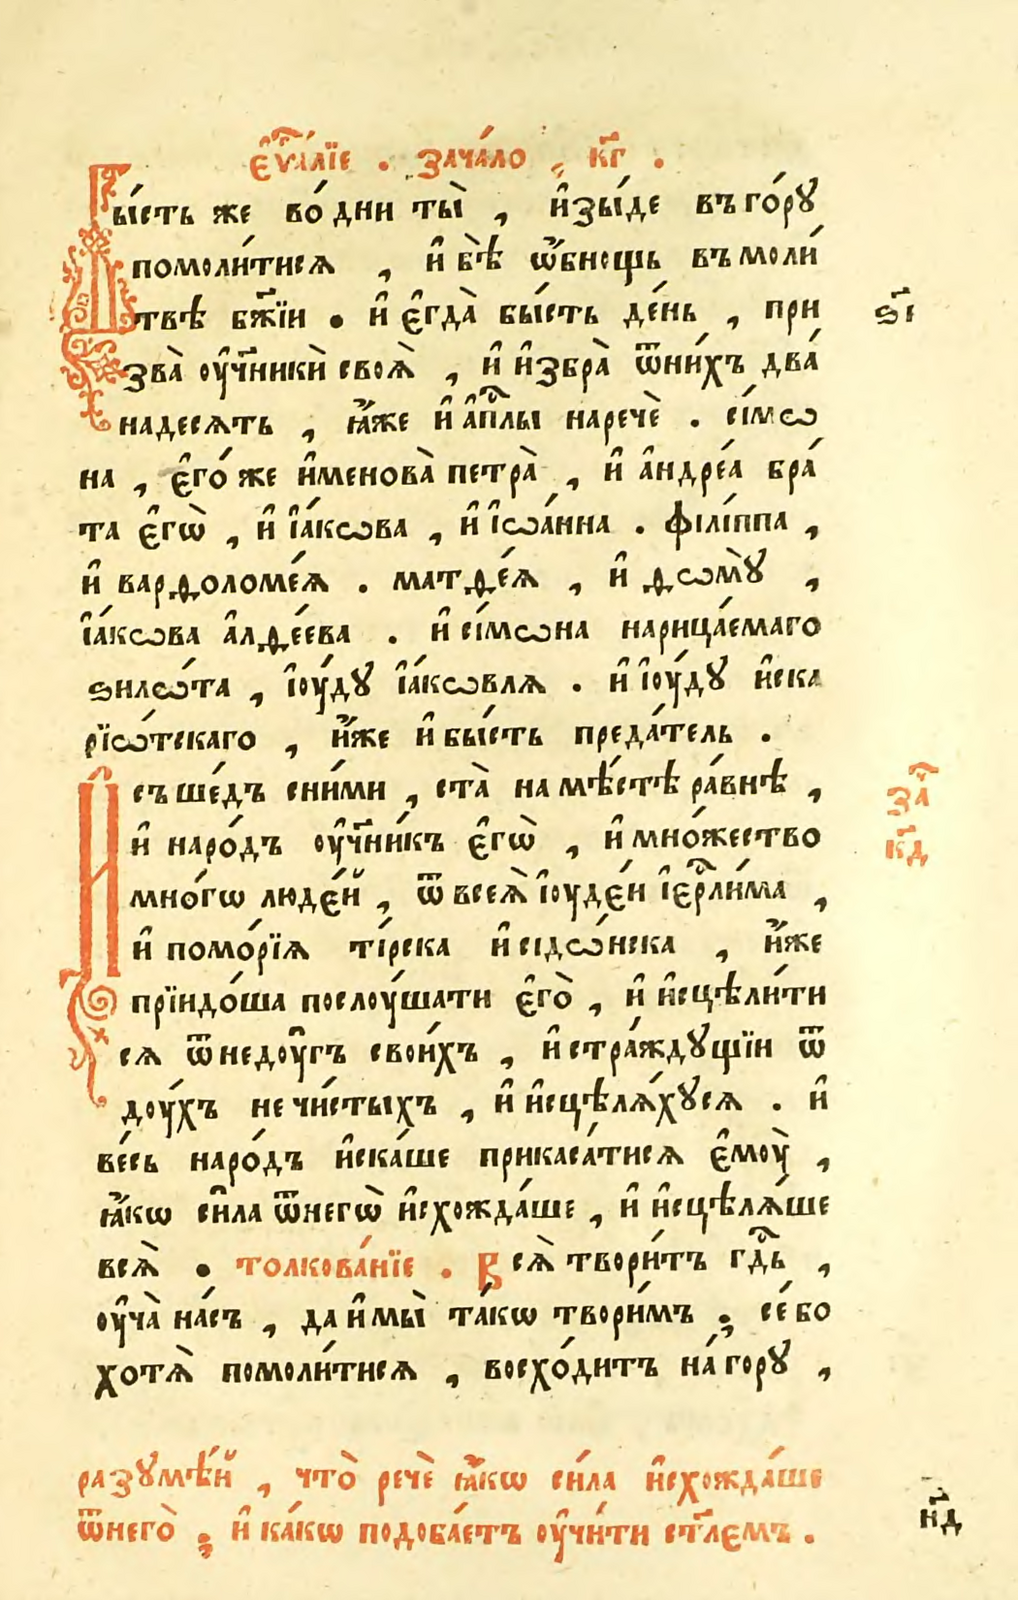 є҆ѵⷢ҇а́лїе . зача́ло , к҃г .
Бы́сть же во́ дни ты̀ , и҆зы́де въ го́рꙋ
помоли́тисѧ , и҆ бѣ̀ ѡ҆́бнощь въ моли́
твѣ бж҃їи . и҆ є҆гда̀ бы́сть де́нь , при
ѕ҃і
зва̀ оу҆чн҃икѝ своѧ̀ , и҆ и҆збра̀ ѿни́хъ два́
надесѧть , ꙗ҆̀же и҆ а҆пⷭ҇лы наречѐ . сі́мѡ
на , є҆го́ же и҆менова̀ петра̀ , и҆ а҆ндре́а бра́
та є҆гѡ̀ , и҆ і҆а́кѡва , и҆ і҆ѡа́нна . філі́ппа ,
и҆ варѳоломе́ѧ . матѳе́ѧ , и҆ ѳѡмꙋ̀ ,
і҆а́кѡва а҆лѳе́ева . и҆ сі́мѡна нарица́емаго
ѕилѡ́та , і҆оу́дꙋ і҆а́кѡвлѧ . и҆ і҆оу́дꙋ и҆ска
рїѡ́тскаго , и҆́же и҆ бы́сть преда́тель .
И съше́дъ сни́ми , ста̀ на мѣ́стѣ ра́внѣ ,
заⷱ҇
и҆ наро́дъ оу҆чн҃и́къ є҆гѡ̀ , и҆ мно́жество
к҃д
мно́гѡ люде́й , ѿ всеѧ̀ і҆оуде́и і҆ерⷭ҇ли́ма ,
и҆ помо́рїѧ ті́рска и҆ сідѡ́нска , и҆̀же
прїидо́ша послоу́шати є҆го̀ , и҆ и҆сцѣли́ти
сѧ ѿ недоу҆гъ свои́хъ , и҆ стра́ждꙋщїи ѿ
доу́хъ нечи́стыхъ , и҆ и҆сцѣлѧ́хꙋсѧ . и҆
ве́сь наро́дъ и҆ска́ше прикаса́тисѧ є҆моу̀ ,
ꙗ҆́кѡ си́ла ѿнегѡ̀ и҆схожда́ше , и҆ и҆сцѣлѧ́ше
всѧ̀ . толкова́нїе . Всѧ̀ твори́тъ гдⷭ҇ь ,
оу҆ча̀ на́съ , да и҆ мы̀ та́кѡ твори́мъ ; се́ бо
хотѧ̀ помоли́тисѧ , восхо́дитъ на́ горꙋ ,
разꙋмѣ́й , что̀ речѐ ꙗ҆́кѡ си́ла и҆схожда́ше
ѿнего̀ ; и҆ ка́кѡ подоба́етъ оу҆чи́ти ст҃лемъ .
н҃д